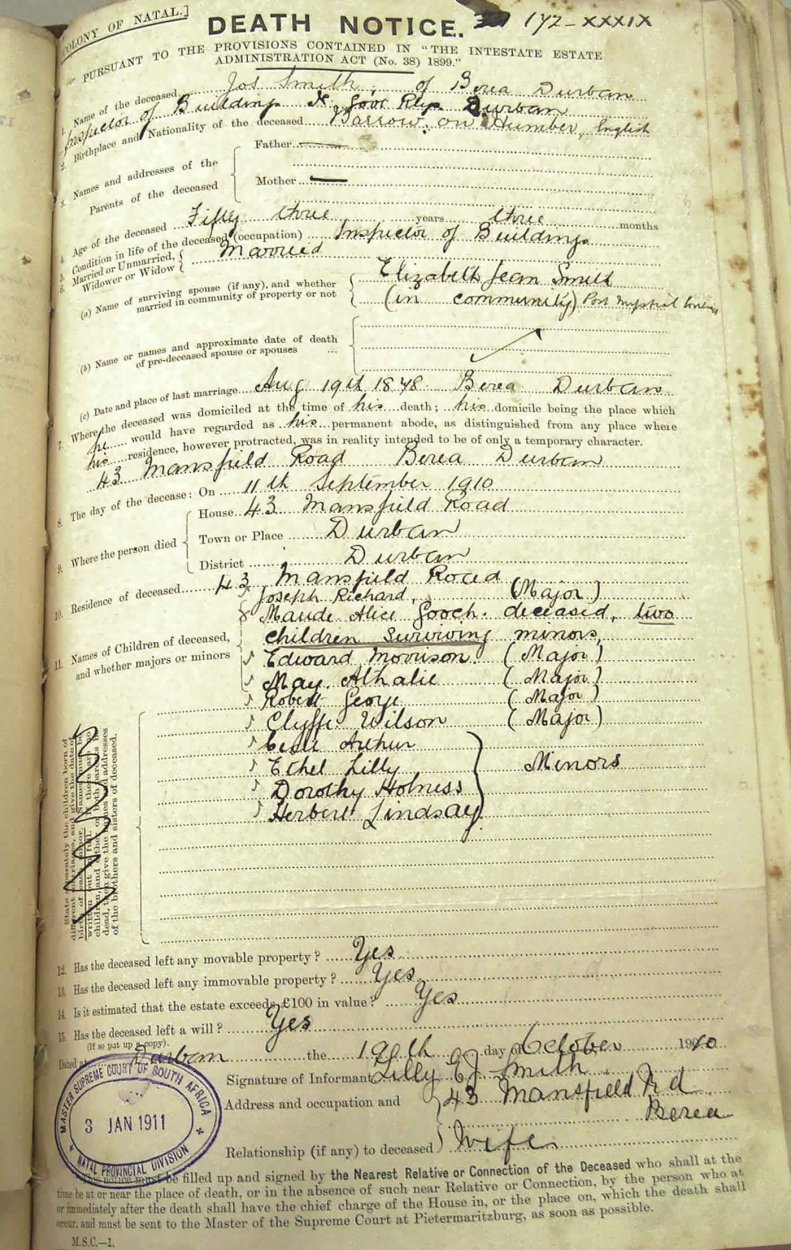 COLONY OF NATAL.]
DEATH NOTICE. 172-XXXIX
PURSUANT TO THE PROVISIONS CONTAINED IN "THE INTESTATE ESTATE
ADMINISTRATION ACT (No. 38) 1899."
1. Name of the deceased Jos Smith, of Berea Durban
Inspector of Buildings Durban
2. Birthplace and Nationality of the deceased Barrow on Humber, English
3. Names and addresses of the Parents of the deceased
Father
Mother
4. Age of the deceased Fifty three years three months
5. Condition in life of the deceased (occupation) Inspector of Buildings
6. Married or Unmarried, Widower or Widow Married
(a) Name of surviving spouse (if any), and whether married in community of property or not
Elizabeth Jean Smith
(in community) Post
(b) Name or names and approximate date of death of pre-deceased spouse or spouses ...
(c) Date and place of last marriage Aug 19th 1878 Berea Durban
7. Where the deceased was domiciled at the time of his death; his domicile being the place which
he would have regarded as his permanent abode, as distinguished from any place where
his residence, however protracted, was in reality intended to be of only a temporary character.
43 Mansfield Road Berea Durban
8. The day of the decease: On 11th September 1910
9. Where the person died
House 43 Mansfield Road
Town or Place Durban
District Durban
10. Residence of deceased 43 Mansfield Road
11. Names of Children of deceased, and whether majors or minors
Joseph Richard, (Major)
Maude Alice Gooch. deceased, two
children surviving minors,
Edward Morrison (Major)
May Athalie (Major)
Robert George (Major)
Clyffe Wilson (Major)
Cecil Arthur
Ethel Lilly Minors
Dorothy Holness
Herbert Lindsay
State separately the children born of
different marriages, and give the date of
birth of each minor. Names must be
written out in full. If there are no
children, and either or both parents be
dead, then give the names and addresses
of the brothers and sisters of deceased.
12. Has the deceased left any movable property? Yes
13. Has the deceased left any immovable property? Yes
14. Is it estimated that the estate exceeds £100 in value? Yes
15. Has the deceased left a will? Yes
(If so put up a copy).
Dated at Durban the 19th day of October 1910
Signature of Informant Lilly EJ Smith
Address and occupation and 43 Mansfield Rd
Berea
Relationship (if any) to deceased Wife
MASTER SUPREME COURT OF SOUTH AFRICA
3 JAN 1911
NATAL PROVINCIAL DIVISION
This notice must be filled up and signed by the Nearest Relative or Connection of the Deceased who shall at the
time be at or near the place of death, or in the absence of such near Relative or Connection, by the person who at
or immediately after the death shall have the chief charge of the House in, or the place on, which the death shall
occur, and must be sent to the Master of the Supreme Court at Pietermaritzburg, as soon as possible.
M.S.C.—1.